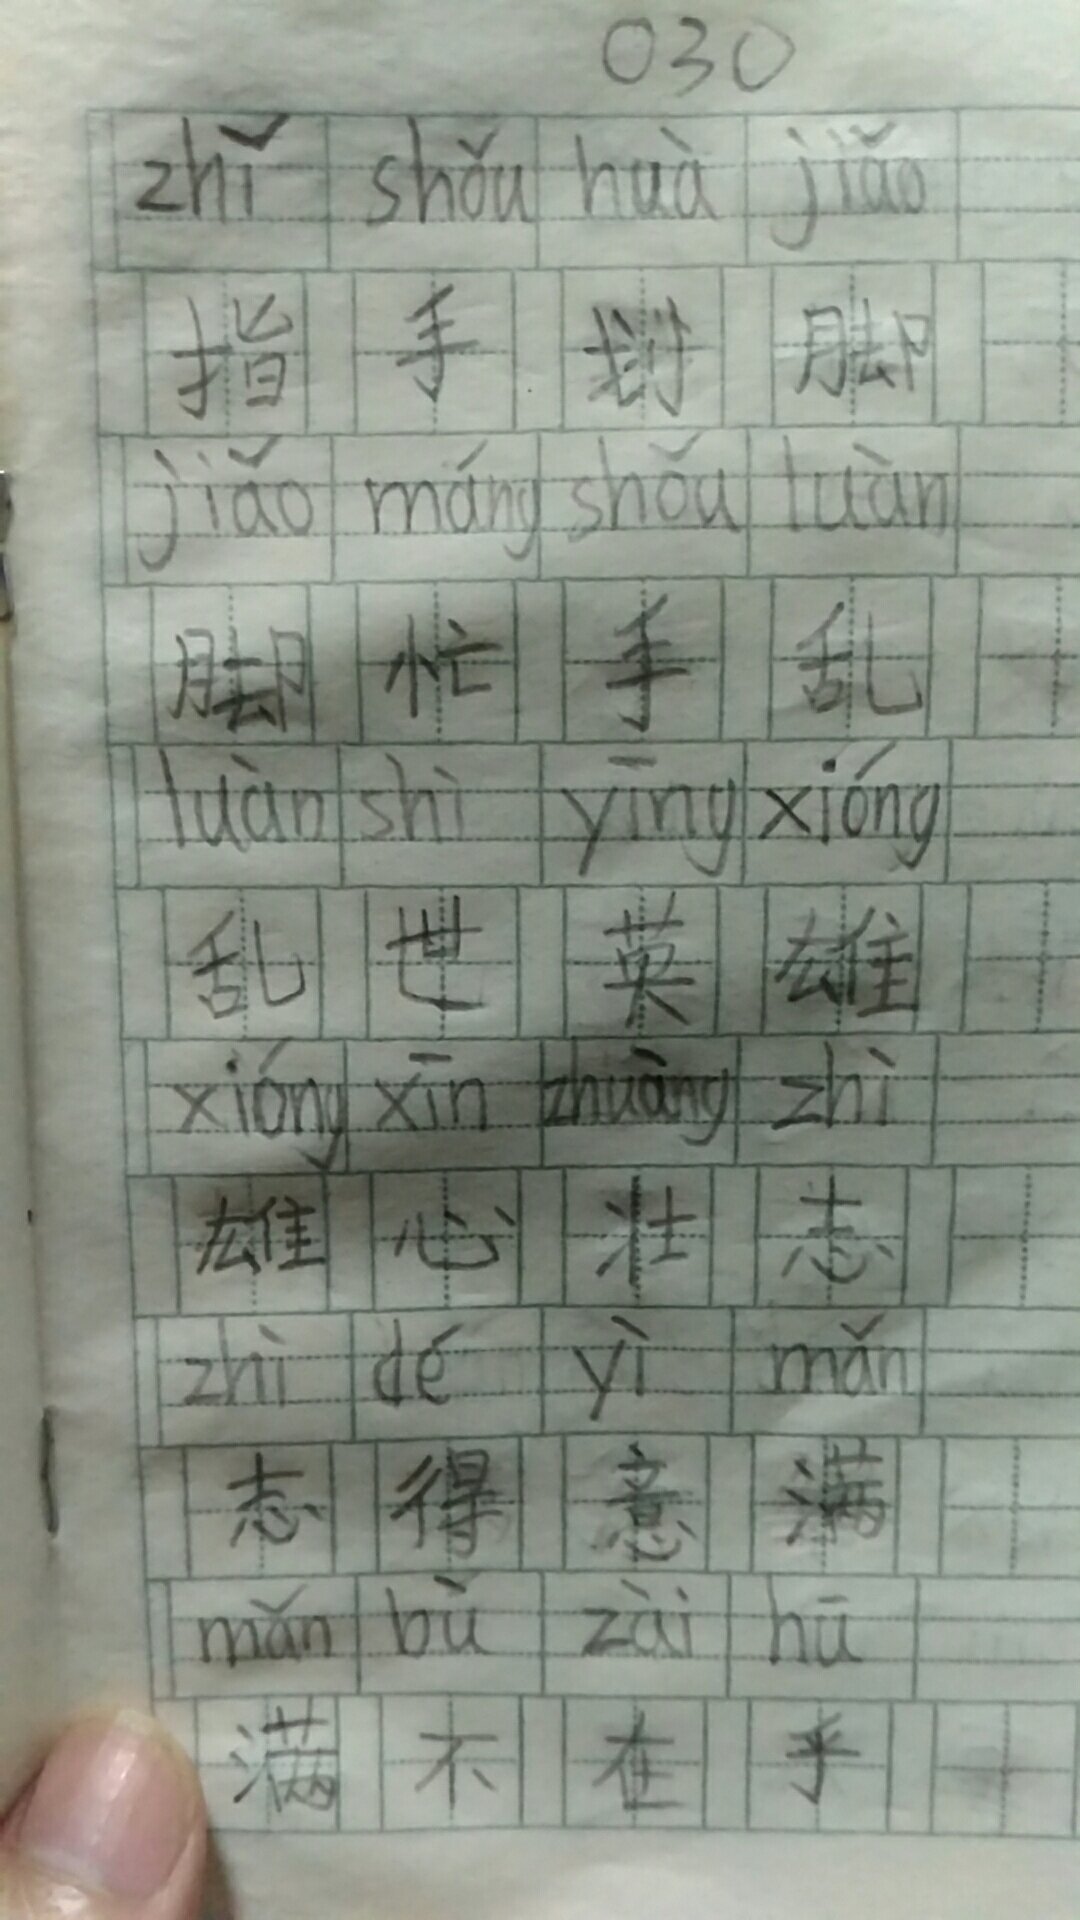 030
zhǐ shǒu huà jiǎo
指手划脚
jiǎo máng shǒu luàn
脚忙手乱
luàn shì yīng xióng
乱世英雄
xióng xīn zhuàng zhì
雄心壮志
zhì dé yì mǎn
志得意满
mǎn bù zài hū
满不在乎